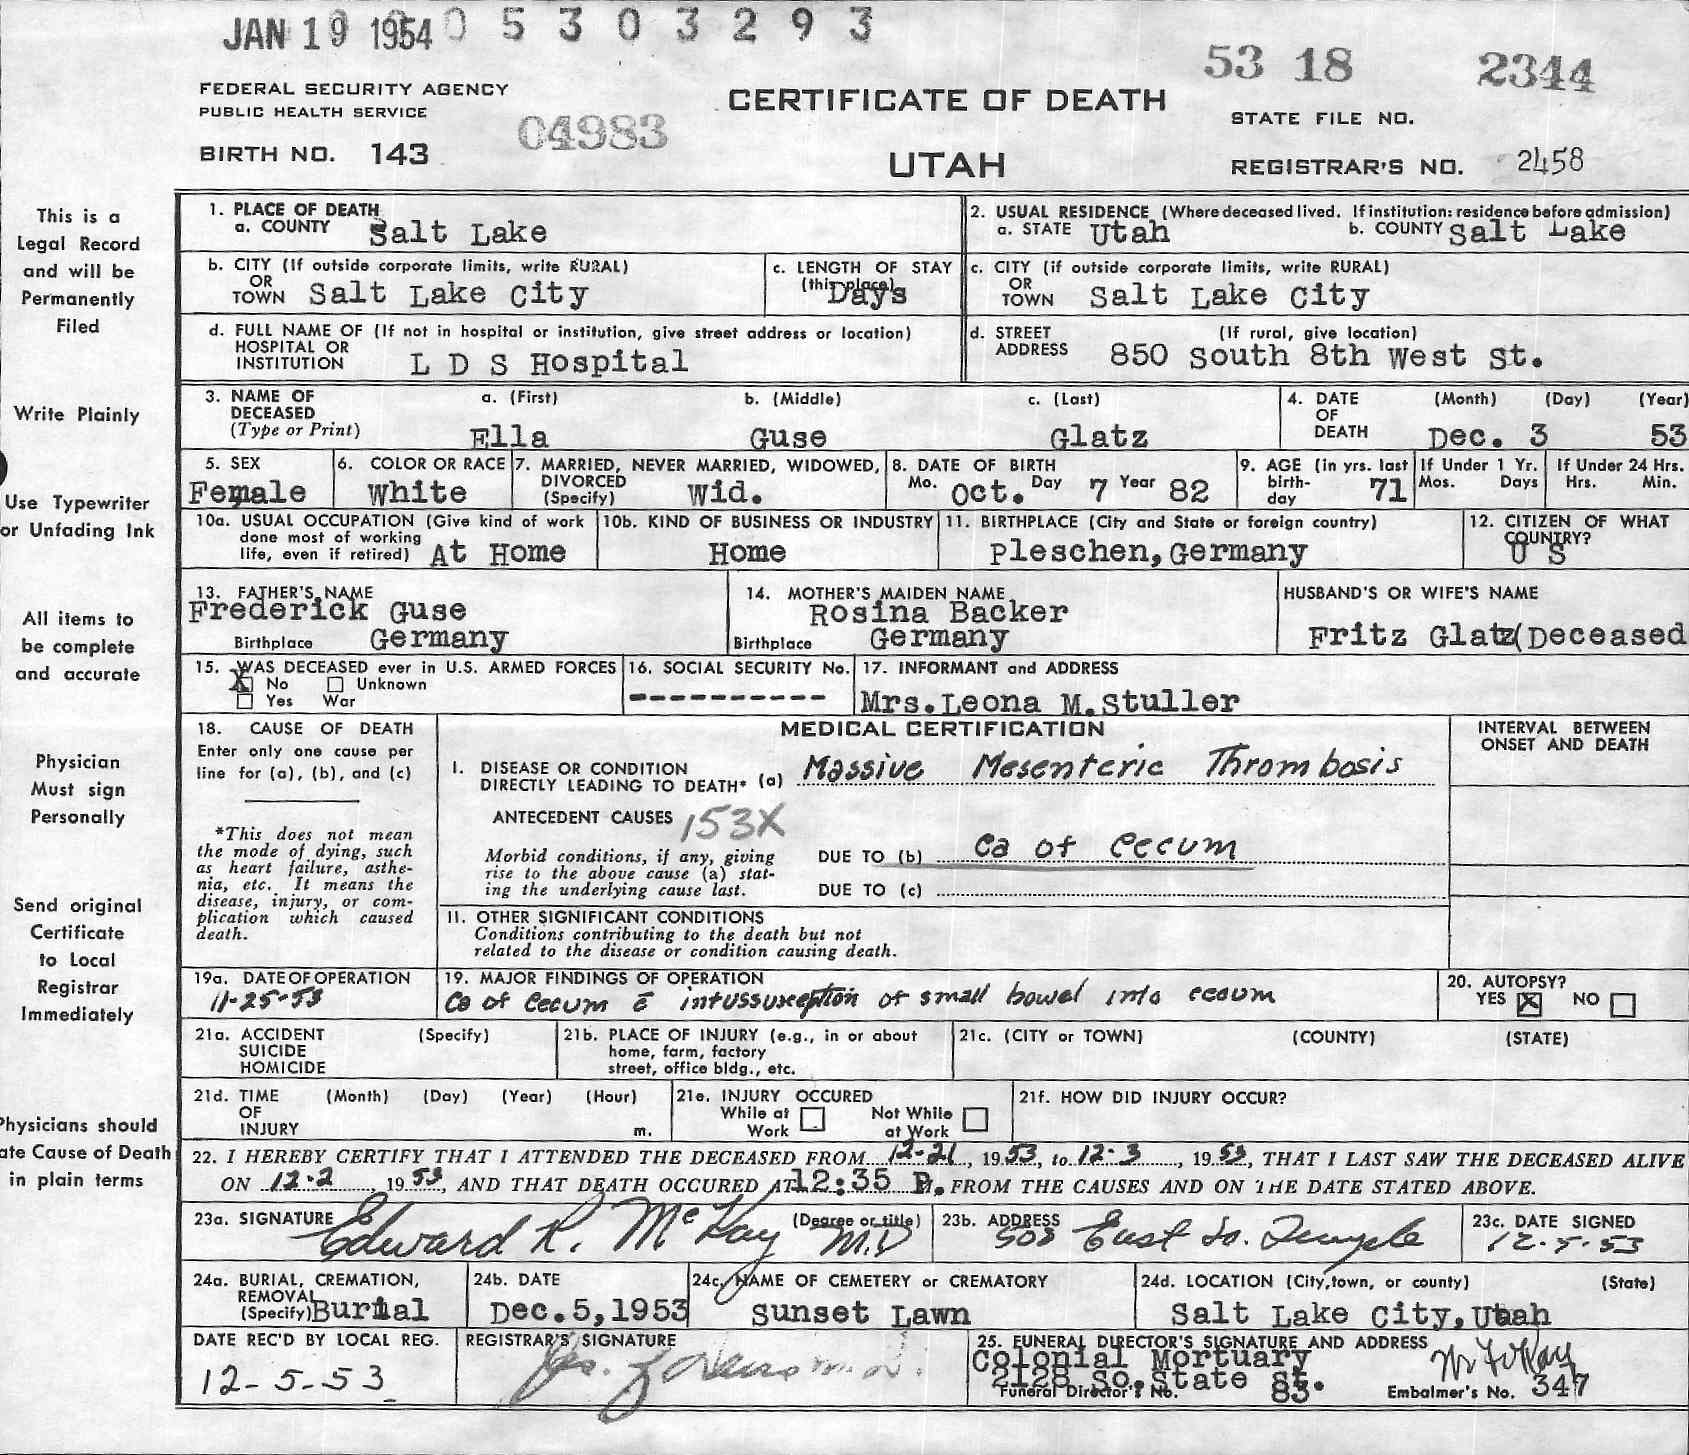 JAN 19 1954 0 5 3 0 3 2 9 3
53 18 2344
FEDERAL SECURITY AGENCY
PUBLIC HEALTH SERVICE
04983
CERTIFICATE OF DEATH
STATE FILE NO.
BIRTH NO. 143
UTAH
REGISTRAR'S NO. 2458
This is a
Legal Record
and will be
Permanently
Filed
Write Plainly
Use Typewriter
or Unfading Ink
All items to
be complete
and accurate
Physician
Must sign
Personally
Send original
Certificate
to Local
Registrar
Immediately
Physicians should
ate Cause of Death
in plain terms
1. PLACE OF DEATH
a. COUNTY Salt Lake
2. USUAL RESIDENCE (Where deceased lived. If institution: residence before admission)
a. STATE Utah b. COUNTY Salt Lake
b. CITY (If outside corporate limits, write RURAL)
OR
TOWN Salt Lake City
c. LENGTH OF STAY
(this place) Days
c. CITY (if outside corporate limits, write RURAL)
OR
TOWN Salt Lake City
d. FULL NAME OF (If not in hospital or institution, give street address or location)
HOSPITAL OR
INSTITUTION L D S Hospital
d. STREET (If rural, give location)
ADDRESS 850 South 8th West St.
3. NAME OF a. (First) b. (Middle) c. (Last)
DECEASED
(Type or Print) Ella Guse Glatz
4. DATE (Month) (Day) (Year)
OF
DEATH Dec. 3 53
5. SEX
Female
6. COLOR OR RACE
White
7. MARRIED, NEVER MARRIED, WIDOWED,
DIVORCED
(Specify) Wid.
8. DATE OF BIRTH
Mo. Oct. Day 7 Year 82
9. AGE (in yrs. last
birth-
day 71
If Under 1 Yr.
Mos. Days
If Under 24 Hrs.
Hrs. Min.
10a. USUAL OCCUPATION (Give kind of work
done most of working
life, even if retired) At Home
10b. KIND OF BUSINESS OR INDUSTRY
Home
11. BIRTHPLACE (City and State or foreign country)
Pleschen, Germany
12. CITIZEN OF WHAT
COUNTRY?
U S
13. FATHER'S NAME
Frederick Guse
Birthplace Germany
14. MOTHER'S MAIDEN NAME
Rosina Backer
Birthplace Germany
HUSBAND'S OR WIFE'S NAME
Fritz Glatz(Deceased
15. WAS DECEASED ever in U.S. ARMED FORCES
X No Unknown
Yes War
16. SOCIAL SECURITY No.
----------
17. INFORMANT and ADDRESS
Mrs. Leona M. Stuller
18. CAUSE OF DEATH
Enter only one cause per
line for (a), (b), and (c)
*This does not mean
the mode of dying, such
as heart failure, asthe-
nia, etc. It means the
disease, injury, or com-
plication which caused
death.
MEDICAL CERTIFICATION
INTERVAL BETWEEN
ONSET AND DEATH
I. DISEASE OR CONDITION
DIRECTLY LEADING TO DEATH* (a) Massive Mesenteric Thrombosis
ANTECEDENT CAUSES 153X
Morbid conditions, if any, giving
rise to the above cause (a) stat-
ing the underlying cause last.
DUE TO (b) Ca of Cecum
DUE TO (c)
II. OTHER SIGNIFICANT CONDITIONS
Conditions contributing to the death but not
related to the disease or condition causing death.
19a. DATE OF OPERATION
11-25-53
19. MAJOR FINDINGS OF OPERATION
Ca of Cecum c̄ intussusception of small bowel into cecum
20. AUTOPSY?
YES X NO
21a. ACCIDENT (Specify)
SUICIDE
HOMICIDE
21b. PLACE OF INJURY (e.g., in or about
home, farm, factory
street, office bldg., etc.
21c. (CITY or TOWN) (COUNTY) (STATE)
21d. TIME (Month) (Day) (Year) (Hour)
OF
INJURY m.
21e. INJURY OCCURED
While at Work Not While at Work
21f. HOW DID INJURY OCCUR?
22. I HEREBY CERTIFY THAT I ATTENDED THE DECEASED FROM 12-21, 1953, to 12-3, 1953, THAT I LAST SAW THE DECEASED ALIVE
ON 12-2, 1953, AND THAT DEATH OCCURED AT 12:35 P. FROM THE CAUSES AND ON THE DATE STATED ABOVE.
23a. SIGNATURE (Degree or title)
Edward R. McKay M.D
23b. ADDRESS
508 East So. Temple
23c. DATE SIGNED
12-5-53
24a. BURIAL, CREMATION,
REMOVAL
(Specify) Burial
24b. DATE
Dec. 5, 1953
24c. NAME OF CEMETERY or CREMATORY
Sunset Lawn
24d. LOCATION (City, town, or county) (State)
Salt Lake City, Utah
DATE REC'D BY LOCAL REG.
12-5-53
REGISTRAR'S SIGNATURE
25. FUNERAL DIRECTOR'S SIGNATURE AND ADDRESS
Colonial Mortuary
2128 So. State St.
Funeral Director's No. 83
Embalmer's No. 347